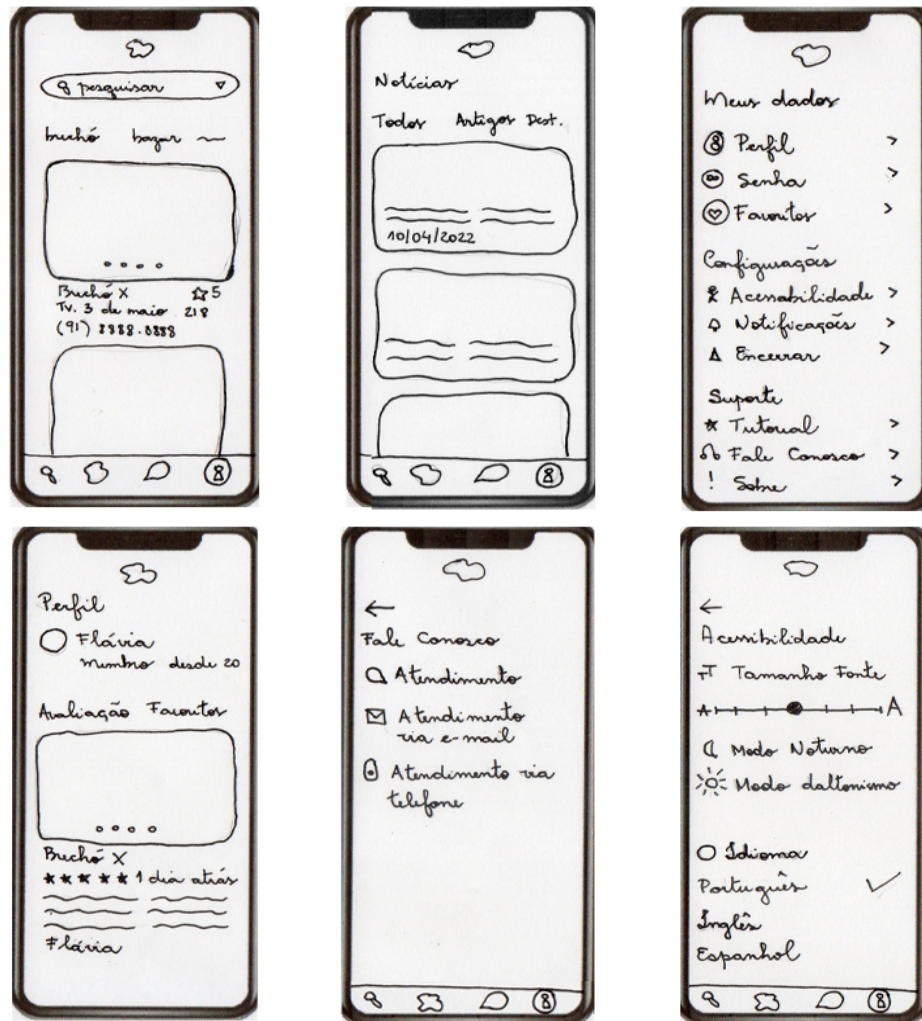 pesquisar
bruchó bazar
Bruchó X 5
Tv. 3 de maio 218
(91) 8888-8888
Notícias
Todos Artigos Dest.
10/04/2022
Meus dados
Perfil >
Senha >
Favoritos >
Configurações
Acessabilidade >
Notificações >
Encerrar >
Suporte
Tutorial >
Fale Conosco >
! Sobre >
Perfil
Flávia
Membro desde 20
Avaliação Favoritos
Bruchó X
1 dia atrás
Flávia
Fale Conosco
Atendimento
Atendimento
via e-mail
Atendimento via
telefone
Acessibilidade
TT Tamanho Fonte
A A
Modo Noturno
Modo daltonismo
Idioma
Português
Inglês
Espanhol